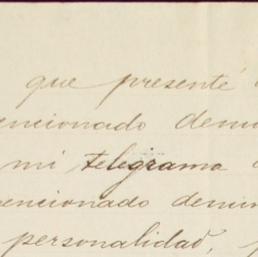 que presenté
encionado denu
mi telegrama
encionado denun
personalidad,